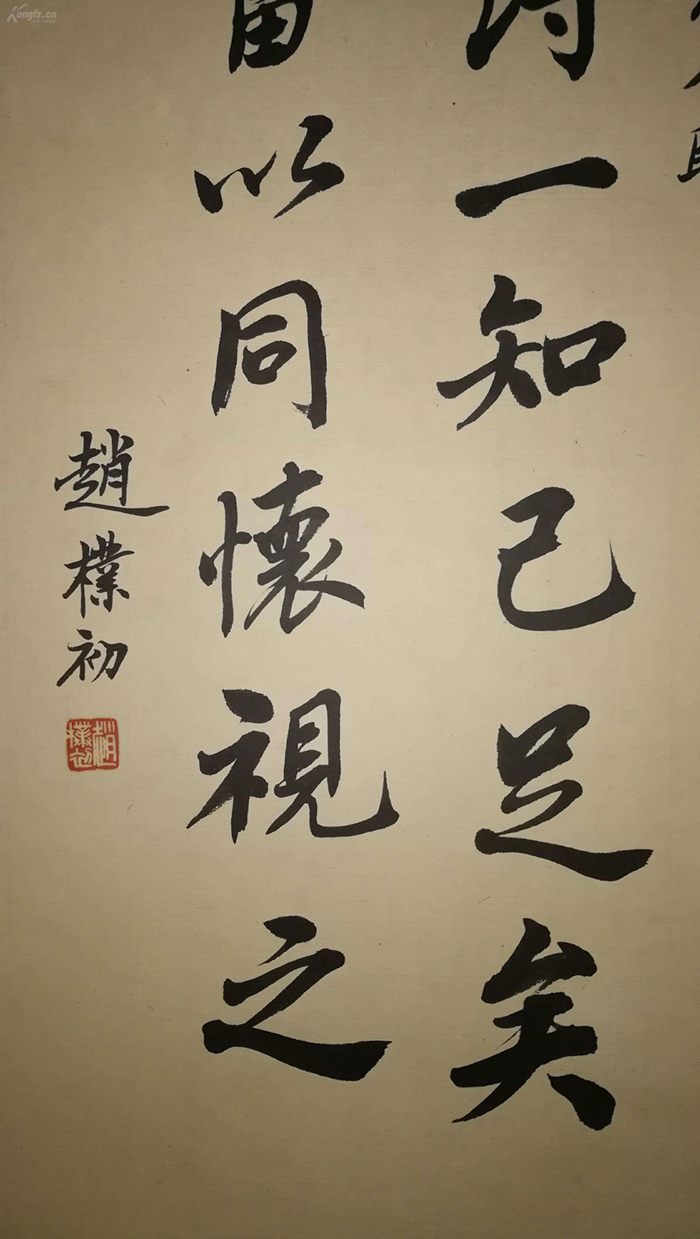 得一知己足矣
當以同懷視之
趙樸初
趙樸初
Kongfz.cn